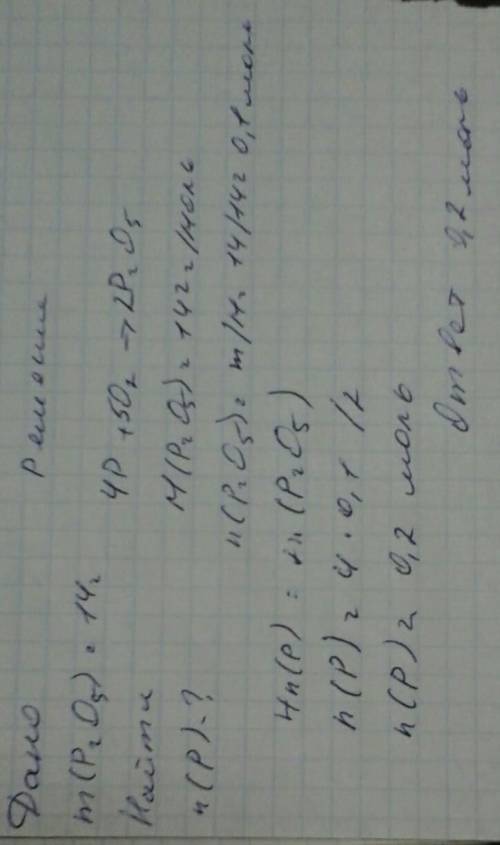 Дано
m(P₂O₅) = 14г
Найти
n(P)-?
Решение
4P + 5O₂ → 2P₂O₅
M(P₂O₅) = 142г/моль
n(P₂O₅) = m/M = 14/142 0,1 моль
4n(P) = 2n(P₂O₅)
n(P) = 4 · 0,1 /2
n(P) = 0,2 моль
Ответ 0,2 моль